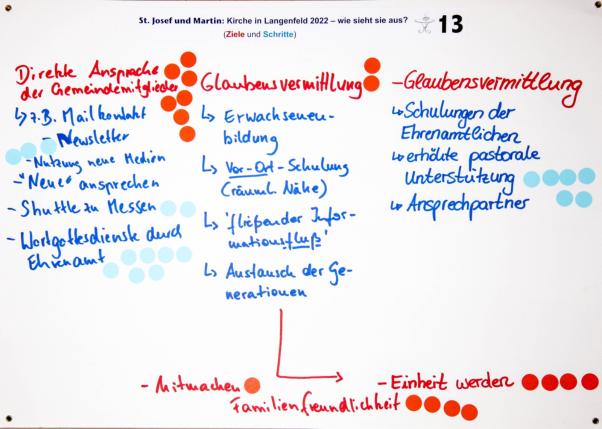 St. Josef und Martin: Kirche in Langenfeld 2022 – wie sieht sie aus?
13
(Ziele und Schritte)
Direkte Ansprache
der Gemeindemitglieder
↳ z.B. Mailkontakt
- Newsletter
- Nutzung neue Medien
- "Neue" ansprechen
- Shuttle zu Messen
- Wortgottesdienste durch
Ehrenamt
Glaubensvermittlung
↳ Erwachsenen-
bildung
↳ Vor-Ort-Schulung
(räuml. Nähe)
↳ 'fließender Infor-
mationsfluß'
↳ Austausch der Ge-
nerationen
- Glaubensvermittlung
↳ Schulungen der
Ehrenamtlichen
↳ erhöhte pastorale
Unterstützung
↳ Ansprechpartner
- Mitmachen
- Einheit werden
Familienfreundlichkeit